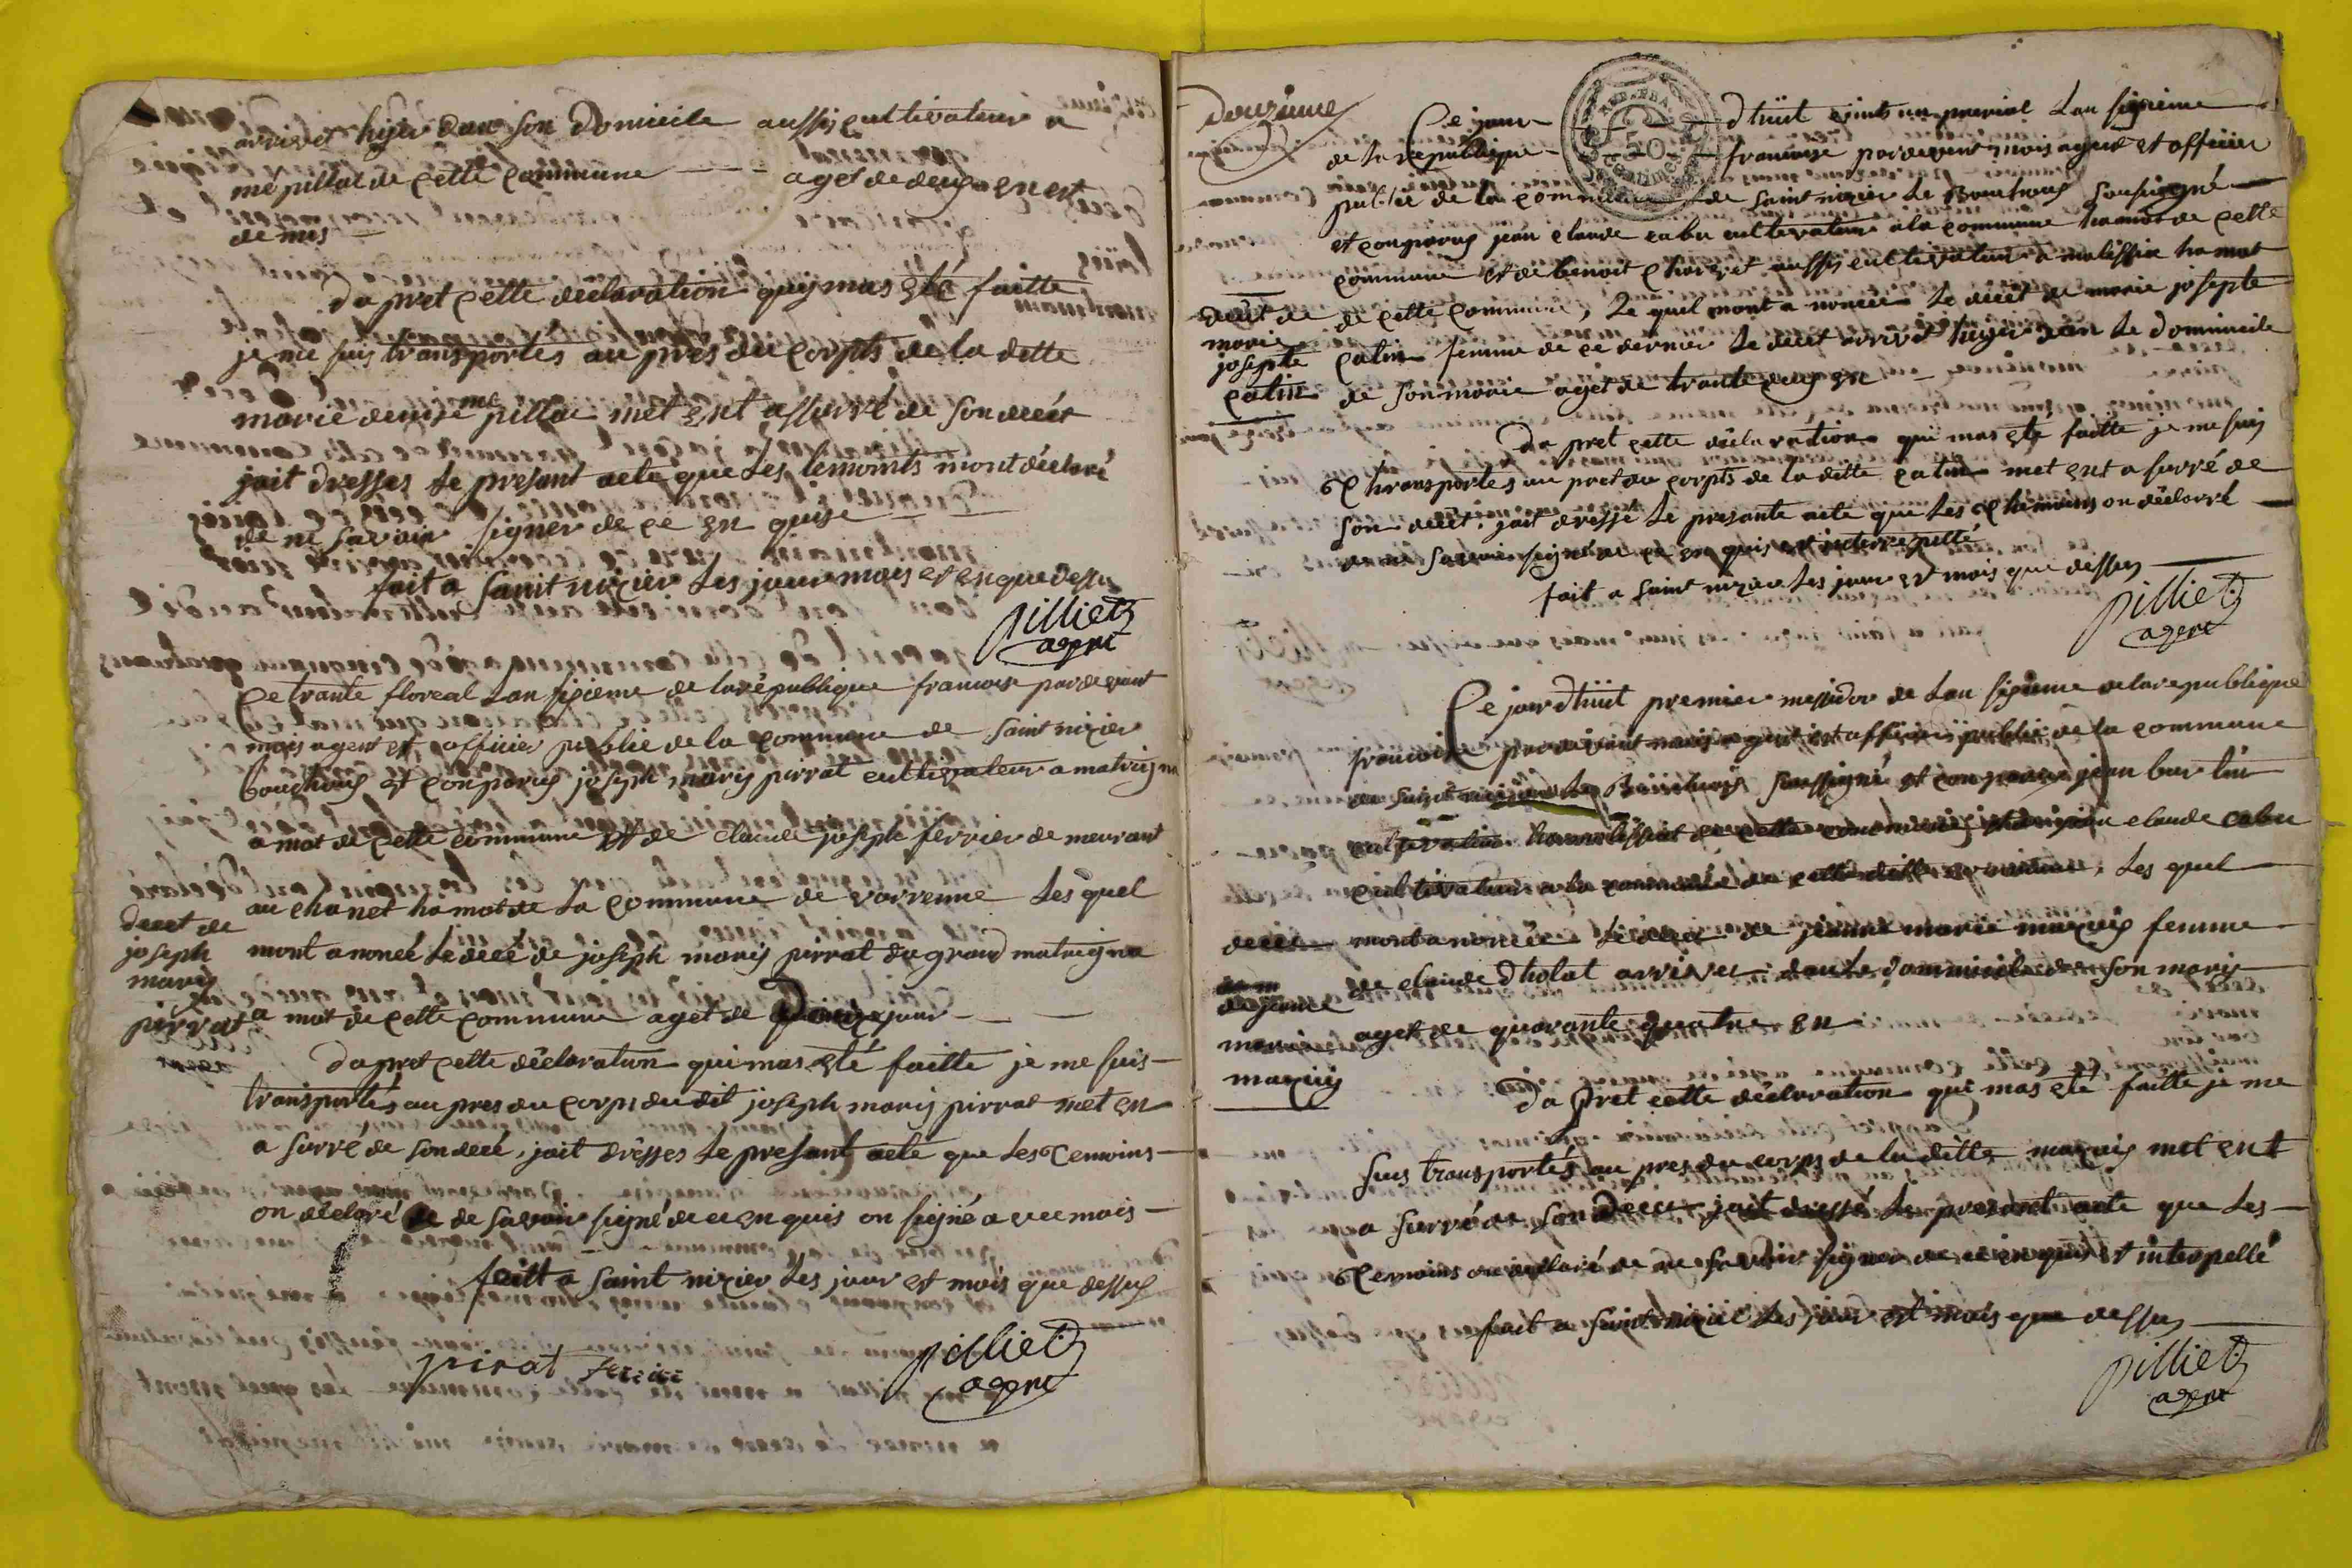 arrivet hyer dan son domicile aussy cultivateur a
me pillat de cette commune aget de deux en et
de mis
da pret cette declaration quy mas eté faitte
je me suis transportés au pres du corpts de la ditte
marie denise me pillat met ent assurré de son decét
jait dresses le present acte que les temoints mont déclaré
de ne savoir signer de ce en quise
fait a saint nizier les jour mois et en que dessu
pilliet
agent
Ce trante floreal lan sixieme de la république francoise pardevant
mois agent et officier publie de la commune de saint nizier
bouchoux et conparus joseph marij pirrat cultivateur a matrigna
a mot de cette commune et de claude joseph ferrier de meurant
au chanet hamot de la commune de varrenne les quel
decet de
joseph
marij
pirrat
mont anoncé le decé de joseph marij pirrat du grand matrigna
a mot de cette commune aget de jour
da pret cette déclaration qui mas eté faitte je me suis
transportés au pres du corps du dit joseph marij pirrat met en
a surré de son decé, jait drésses le presant acte que les temoins
on déclaré de savoir signé de ce en quis on signé avec mois
faitt a saint nizier les jour et mois que dessus
pirat ferrier
pilliet
agent
Douzieme
Ce jour dhuit vints un prerial lan sixieme
de la republique francoise pardevent mois agent et officier
publié de la commune de saint nizier le Bouchoux sousigné
et conparus jean claude cabu cultivateur a la commune hamot de cette
commune et de benoit charvet aussy cultivateur a malissia hamot
decét de
marie
josepte
catin
de cette commune, le quel mont a noncée le decét de marie josepte
catin femme de ce dernier le decét arrivét hyer dan le domimcile
de son marie aget de trante deux en
da pret cette déclaration qui mas eté faitte je me suis
thransportés au pret du corpts de la ditte catin met ent a surré de
son decét, jait dressé le presante acte que les themoins on déclarré
de ne savoir signé de ce en quis et interrepellé
fait a saint nizier les jour et mois que dessus
pilliet
agent
Ce jour dhuit premier messidor de lan sixieme de la republique
francoise pardevant mois agent et officier publie de la commune
de saint nizier le Bouchoux soussigné et conparus jean burtin
cultivateur de cette commune et de jean claude cabu
cultivateur a la commune de cette ditte commune, les quel
decét
de jeanne
marie
maquis
mont a noncée le decét de jeanne marie maquis femme
de claude dholat arrivet dan le dommicile de son maris
aget de quarante quatre en
da pret cette déclaration qui mas eté faitte je me
suis transportés au pres du corps de la ditte maquis met ent
a surré de son decét jait dressé le presant acte que les
temoins on déclaré de ne savoir signer de ce en quis et interpellé
fait a saint nizier les jour et mois que dessus
pilliet
agent